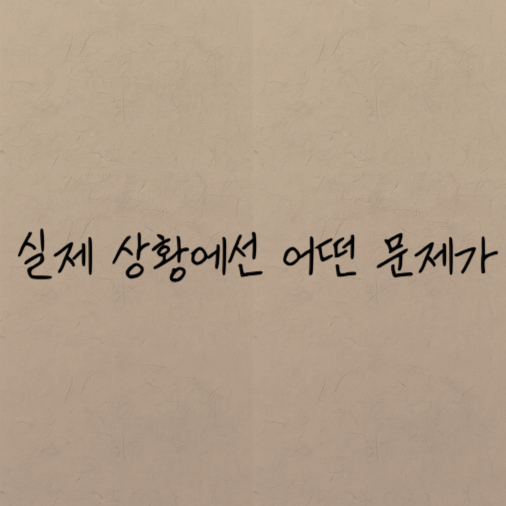 실제 상황에선 어떤 문제가